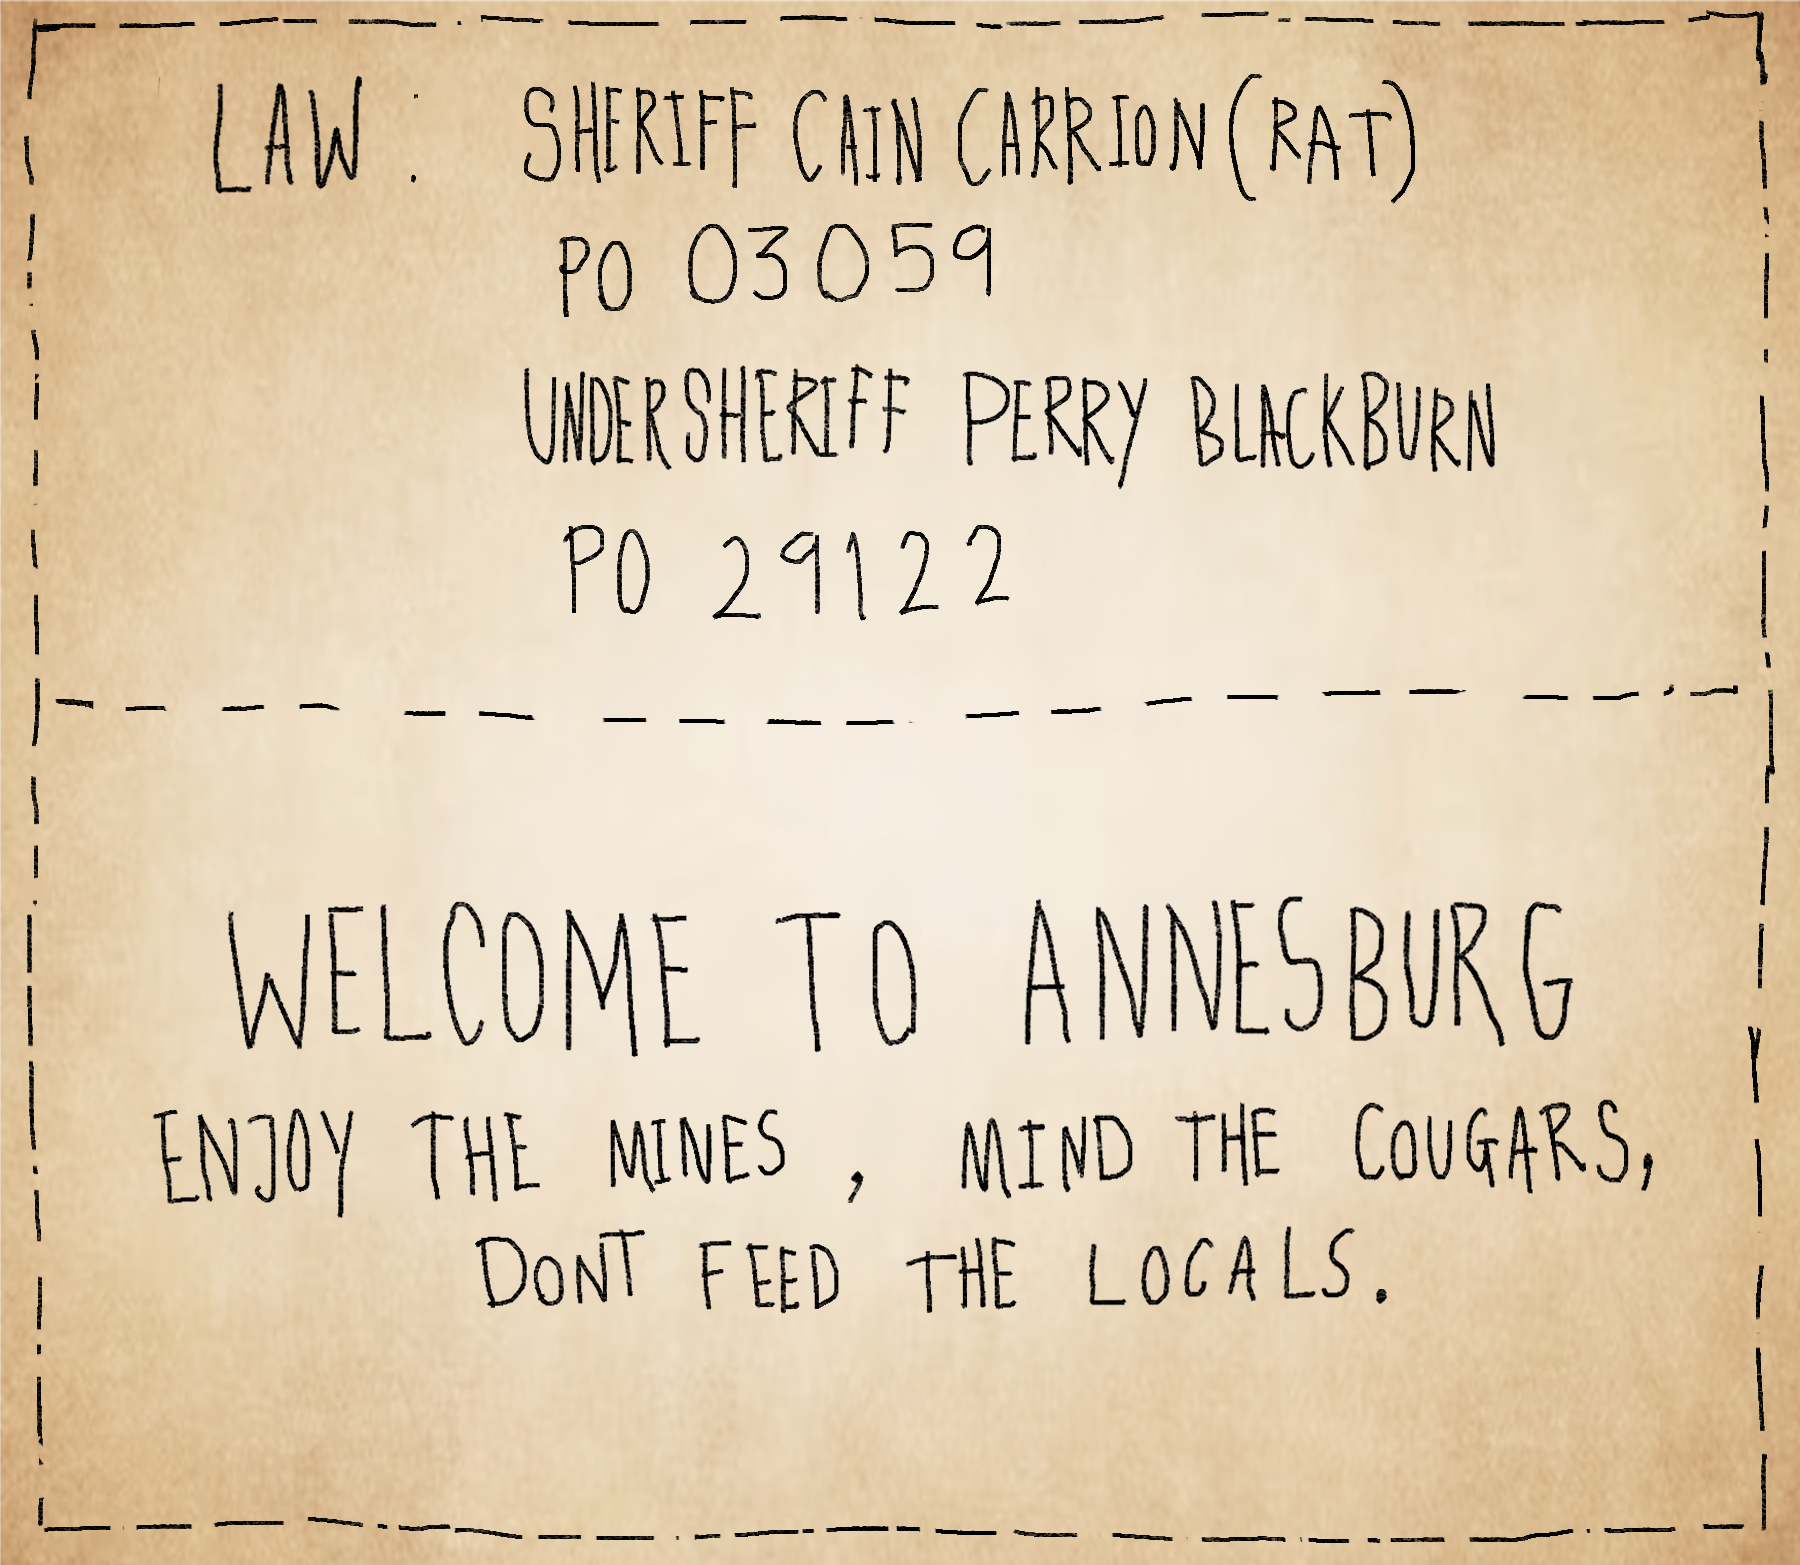 LAW: SHERIFF CAIN CARRION (RAT)
PO 03059
UNDERSHERIFF PERRY BLACKBURN
PO 29122
WELCOME TO ANNESBURG
ENJOY THE MINES, MIND THE COUGARS,
DONT FEED THE LOCALS.